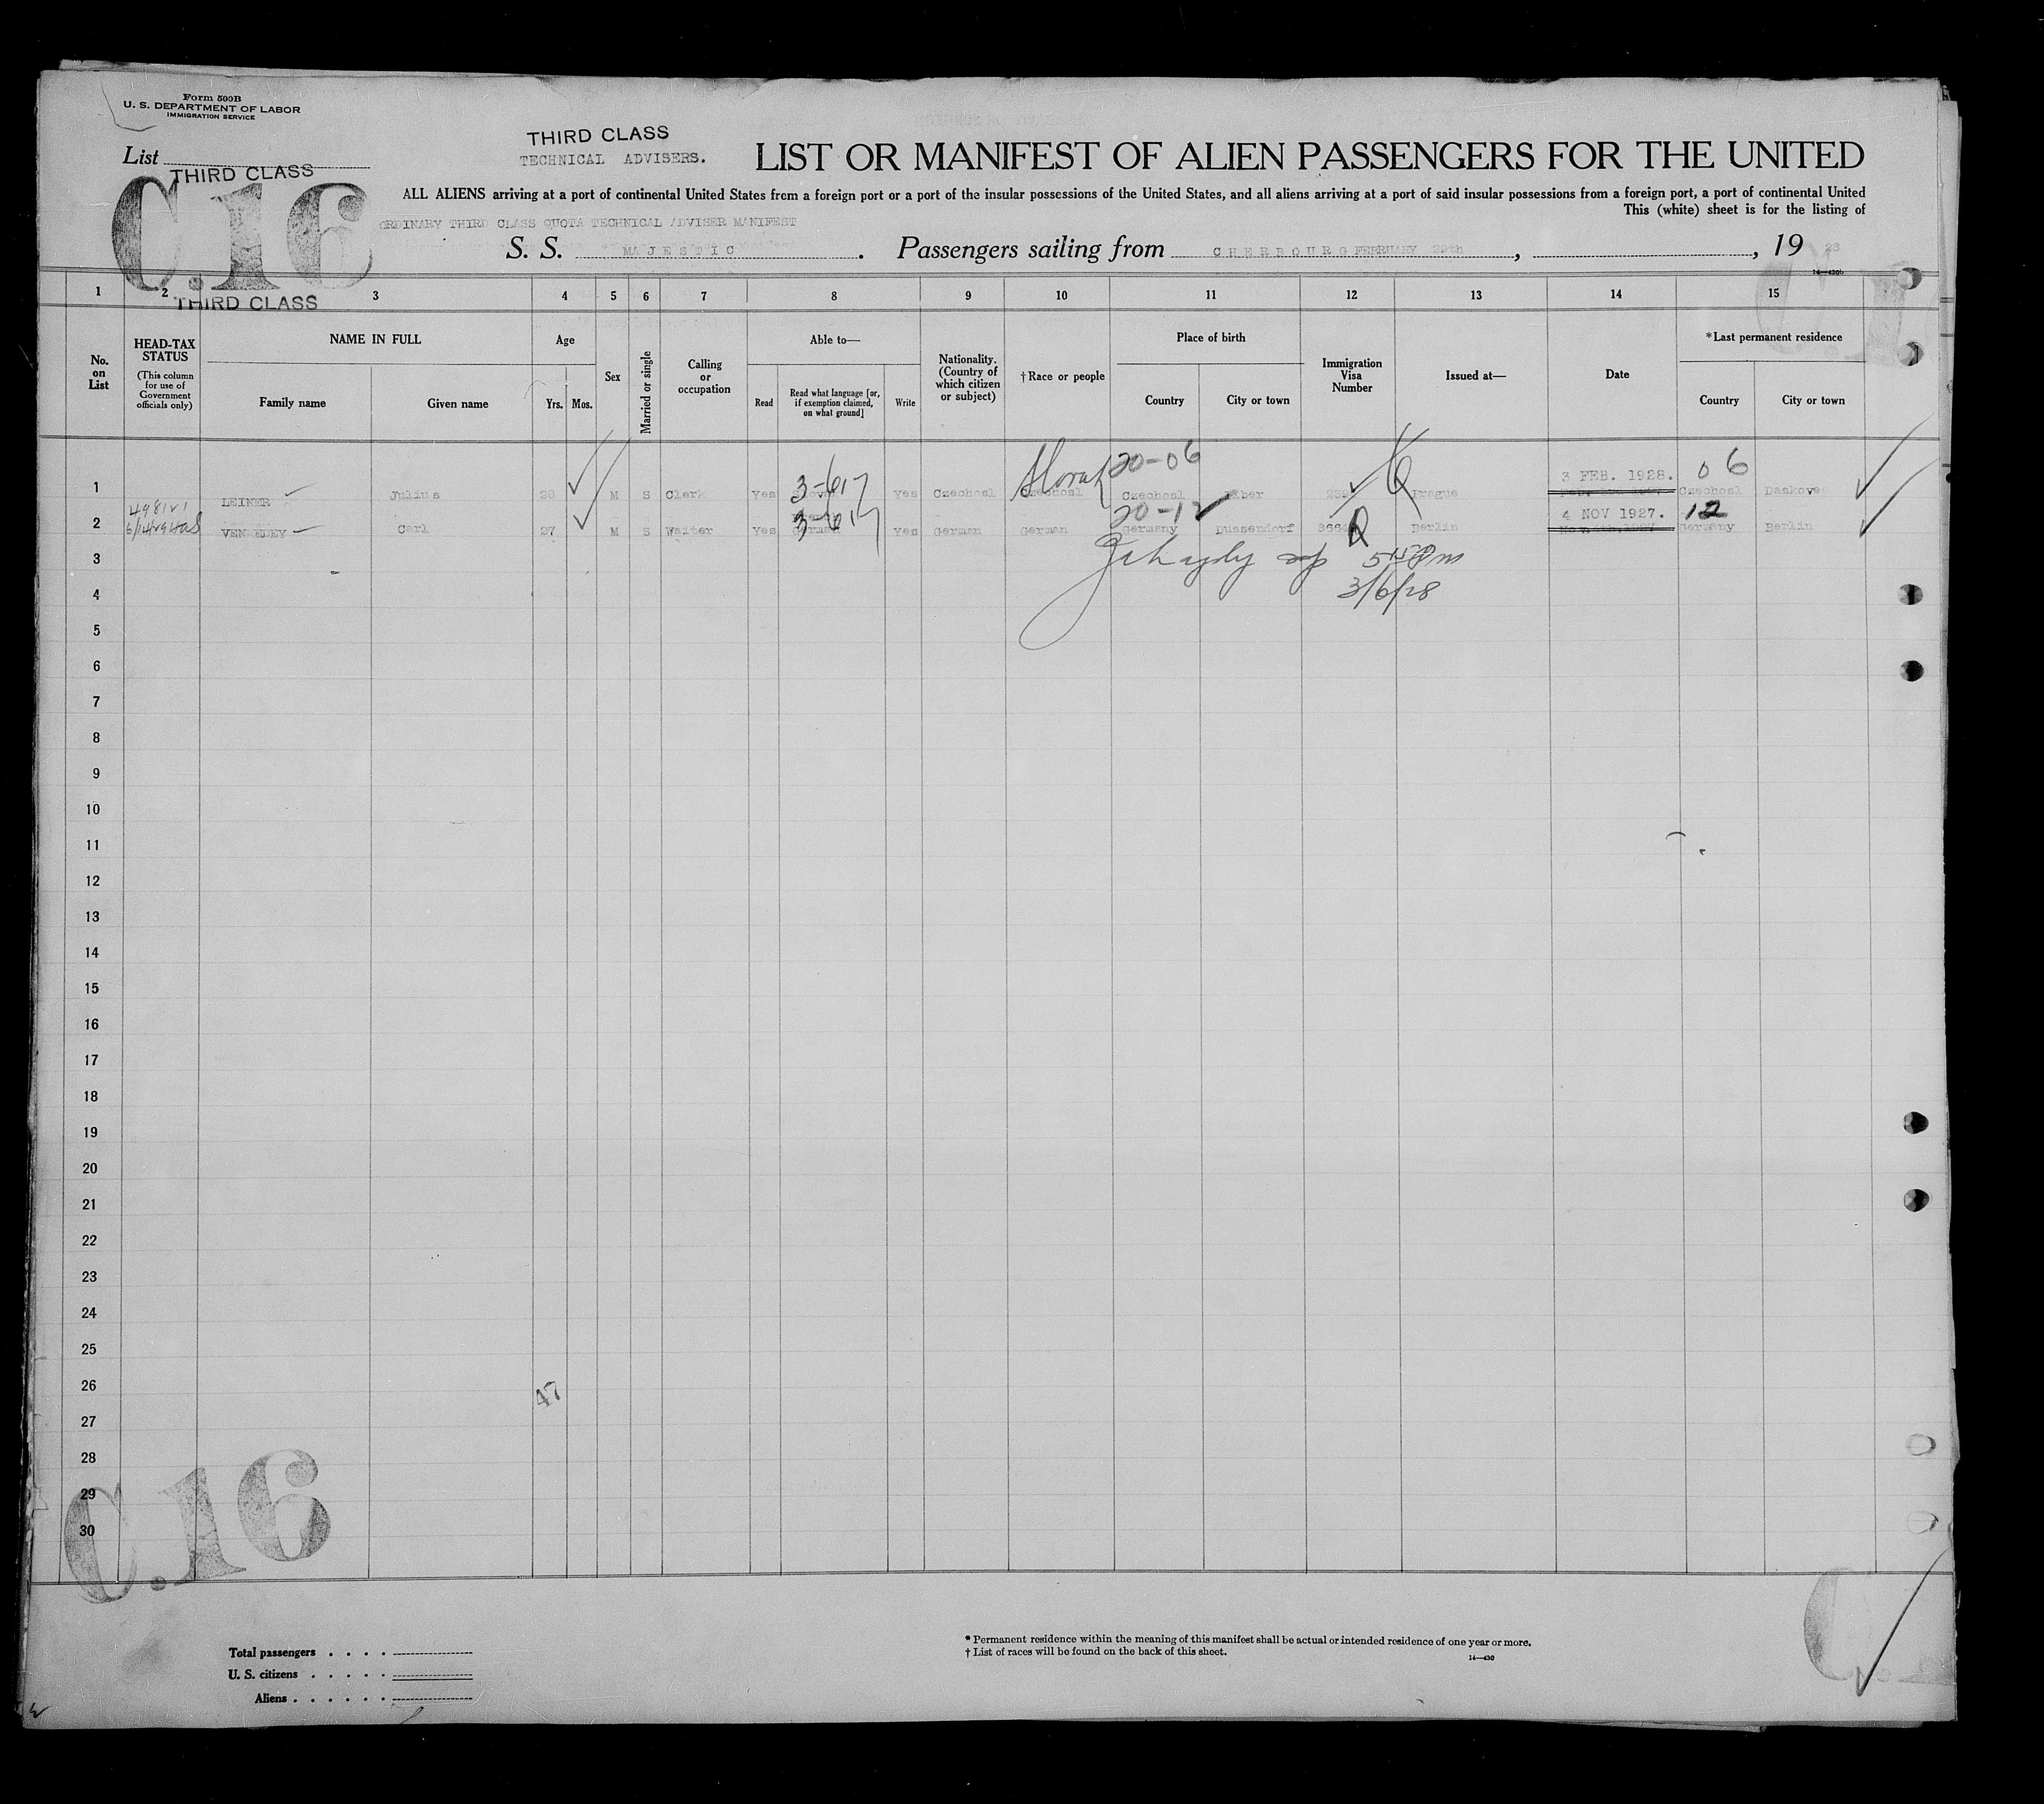 Form 500B
U. S. DEPARTMENT OF LABOR
IMMIGRATION SERVICE
List
THIRD CLASS
C.16
THIRD CLASS
THIRD CLASS
TECHNICAL ADVISERS.
LIST OR MANIFEST OF ALIEN PASSENGERS FOR THE UNITED
ALL ALIENS arriving at a port of continental United States from a foreign port or a port of the insular possessions of the United States, and all aliens arriving at a port of said insular possessions from a foreign port, a port of continental United
This (white) sheet is for the listing of
ORDINARY THIRD CLASS QUOTA TECHNICAL ADVISER MANIFEST
S. S. MAJESTIC. Passengers sailing from CHERBOURG FEBRUARY 29th, , 19 28
14—430b
1 2 3 4 5 6 7 8 9 10 11 12 13 14 15
No. on List
HEAD-TAX STATUS
(This column for use of Government officials only)
NAME IN FULL
Family name Given name
Age
Yrs. Mos.
Sex
Married or single
Calling or occupation
Able to—
Read
Read what language [or, if exemption claimed, on what ground]
Write
Nationality. (Country of which citizen or subject)
†Race or people
Place of birth
Country City or town
Immigration Visa Number
Issued at—
Date
*Last permanent residence
Country City or town
20-06 3 FEB. 1928. 06
1 LEINER Julius 28 M S Clerk Yes 3-617 Yes Czechosl Czechosl Czechosl Prague Czechosl
498121 20-12 4 NOV 1927. 12
2 Carl 27 M S Waiter Yes 3-617 German Yes German German Germany Dussendorf Berlin Germany Berlin
3
3/6/28
4
5
6
7
8
9
10
11
12
13
14
15
16
17
18
19
20
21
22
23
24
25
26 47
27
28
29
30
C.16
Total passengers
U. S. citizens
Aliens
* Permanent residence within the meaning of this manifest shall be actual or intended residence of one year or more.
† List of races will be found on the back of this sheet.
14—430